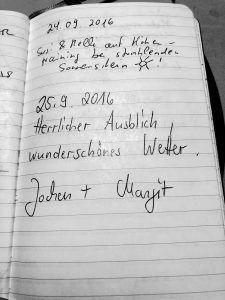 24.09.2016
& Nelli auf Hohen-
be strahlenden
Sonnenschein !
25.9.2016
Herrlicher Ausblick
wunderschönes Wetter.
Jochen + Margit